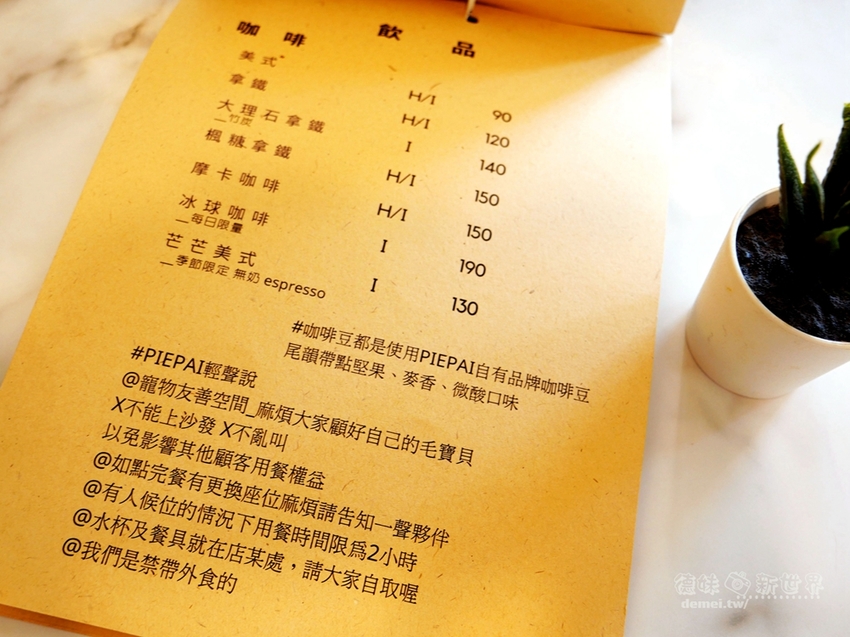 咖啡 飲品
美式" H/I 90
拿鐵 H/I 120
大理石拿鐵 I 140
__竹炭
楓糖拿鐵 H/I 150
摩卡咖啡 H/I 150
冰球咖啡 I 190
__每日限量
芒芒美式 I 130
__季節限定 無奶 espresso
#咖啡豆都是使用PIEPAI自有品牌咖啡豆
尾韻帶點堅果、麥香、微酸口味
#PIEPAI輕聲說
@寵物友善空間_麻煩大家顧好自己的毛寶貝
X不能上沙發 X不亂叫
以免影響其他顧客用餐權益
@如點完餐有更換座位麻煩請告知一聲夥伴
@有人候位的情況下用餐時間限為2小時
@水杯及餐具就在店某處，請大家自取喔
@我們是禁帶外食的
德味 新世界
demei.tw/